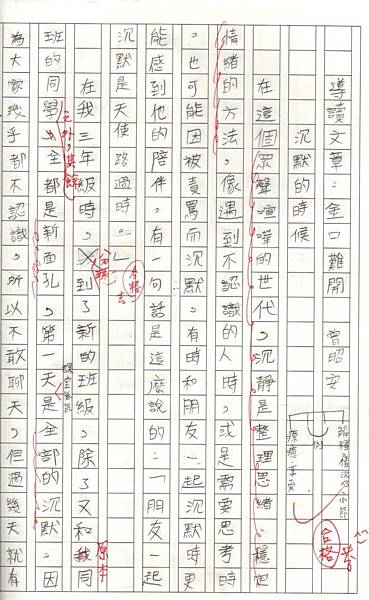 導讀文章：金口難開 曾昭安
沉默的時候
在這個眾聲喧嘩的世代，沉靜是整理思緒、穩定
情緒的方法，像遇到不認識的人時，或是需要思考時
，也可能因被責罵而沉默。有時和朋友一起沉默時更
能感到他的陪伴，有一句話是這麼說的：「朋友一起
沉默是天使路過時。」
在我三年級時，到了新的班級，除了又和我同
班的同學，全都是新面孔，第一天是全部的沉默。因
為大家幾乎都不認識，所以不敢聊天，但過幾天就有
例
療癒；享受
合格
合格
原本
之外，其餘